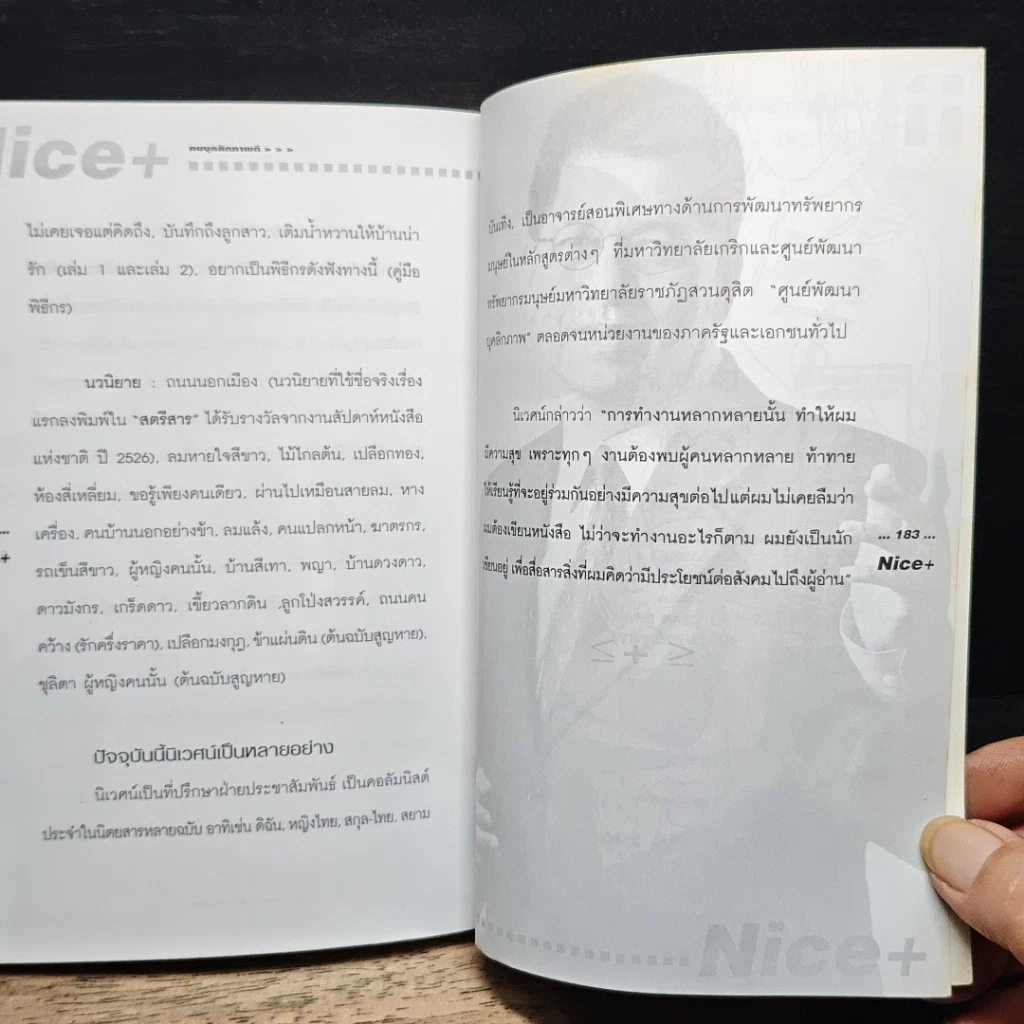 Nice+ คนบุคลิกภาพดี > > >
ไม่เคยเจอแต่คิดถึง, บันทึกถึงลูกสาว, เติมน้ำหวานให้บ้านน่า
รัก (เล่ม 1 และเล่ม 2), อยากเป็นพิธีกรดังฟังทางนี้ (คู่มือ
พิธีกร)
นวนิยาย : ถนนนอกเมือง (นวนิยายที่ใช้ชื่อจริงเรื่อง
แรกลงพิมพ์ใน "สตรีสาร" ได้รับรางวัลจากงานสัปดาห์หนังสือ
แห่งชาติ ปี 2526), ลมหายใจสีขาว, ไม้ไกลต้น, เปลือกทอง,
ห้องสี่เหลี่ยม, ขอรู้เพียงคนเดียว, ผ่านไปเหมือนสายลม, หาง
เครื่อง, คนบ้านนอกอย่างข้า, ลมแล้ง, คนแปลกหน้า, ฆาตรกร,
รถเข็นสีขาว, ผู้หญิงคนนั้น, บ้านสีเทา, พญา, บ้านดวงดาว,
ดาวมังกร, เกร็ดดาว, เขี้ยวลากดิน ,ลูกโป่งสวรรค์, ถนนคน
คว้าง (รักครึ่งราคา), เปลือกมงกุฎ, ข้าแผ่นดิน (ต้นฉบับสูญหาย),
ชุลิตา ผู้หญิงคนนั้น (ต้นฉบับสูญหาย)
ปัจจุบันนี้นิเวศน์เป็นหลายอย่าง
นิเวศน์เป็นที่ปรึกษาฝ่ายประชาสัมพันธ์ เป็นคอลัมนิสต์
ประจำในนิตยสารหลายฉบับ อาทิเช่น ดิฉัน, หญิงไทย, สกุล-ไทย, สยาม
...
+
บันเทิง, เป็นอาจารย์สอนพิเศษทางด้านการพัฒนาทรัพยากร
มนุษย์ในหลักสูตรต่างๆ ที่มหาวิทยาลัยเกริกและศูนย์พัฒนา
ทรัพยากรมนุษย์มหาวิทยาลัยราชภัฏสวนดุสิต "ศูนย์พัฒนา
บุคลิกภาพ" ตลอดจนหน่วยงานของภาครัฐและเอกชนทั่วไป
นิเวศน์กล่าวว่า "การทำงานหลากหลายนั้น ทำให้ผม
มีความสุข เพราะทุกๆ งานต้องพบผู้คนหลากหลาย ท้าทาย
ให้เรียนรู้ที่จะอยู่ร่วมกันอย่างมีความสุขต่อไปแต่ผมไม่เคยลืมว่า
ผมต้องเขียนหนังสือ ไม่ว่าจะทำงานอะไรก็ตาม ผมยังเป็นนัก
เขียนอยู่ เพื่อสื่อสารสิ่งที่ผมคิดว่ามีประโยชน์ต่อสังคมไปถึงผู้อ่าน"
... 183 ...
Nice+
≤ + ≥
Nice+